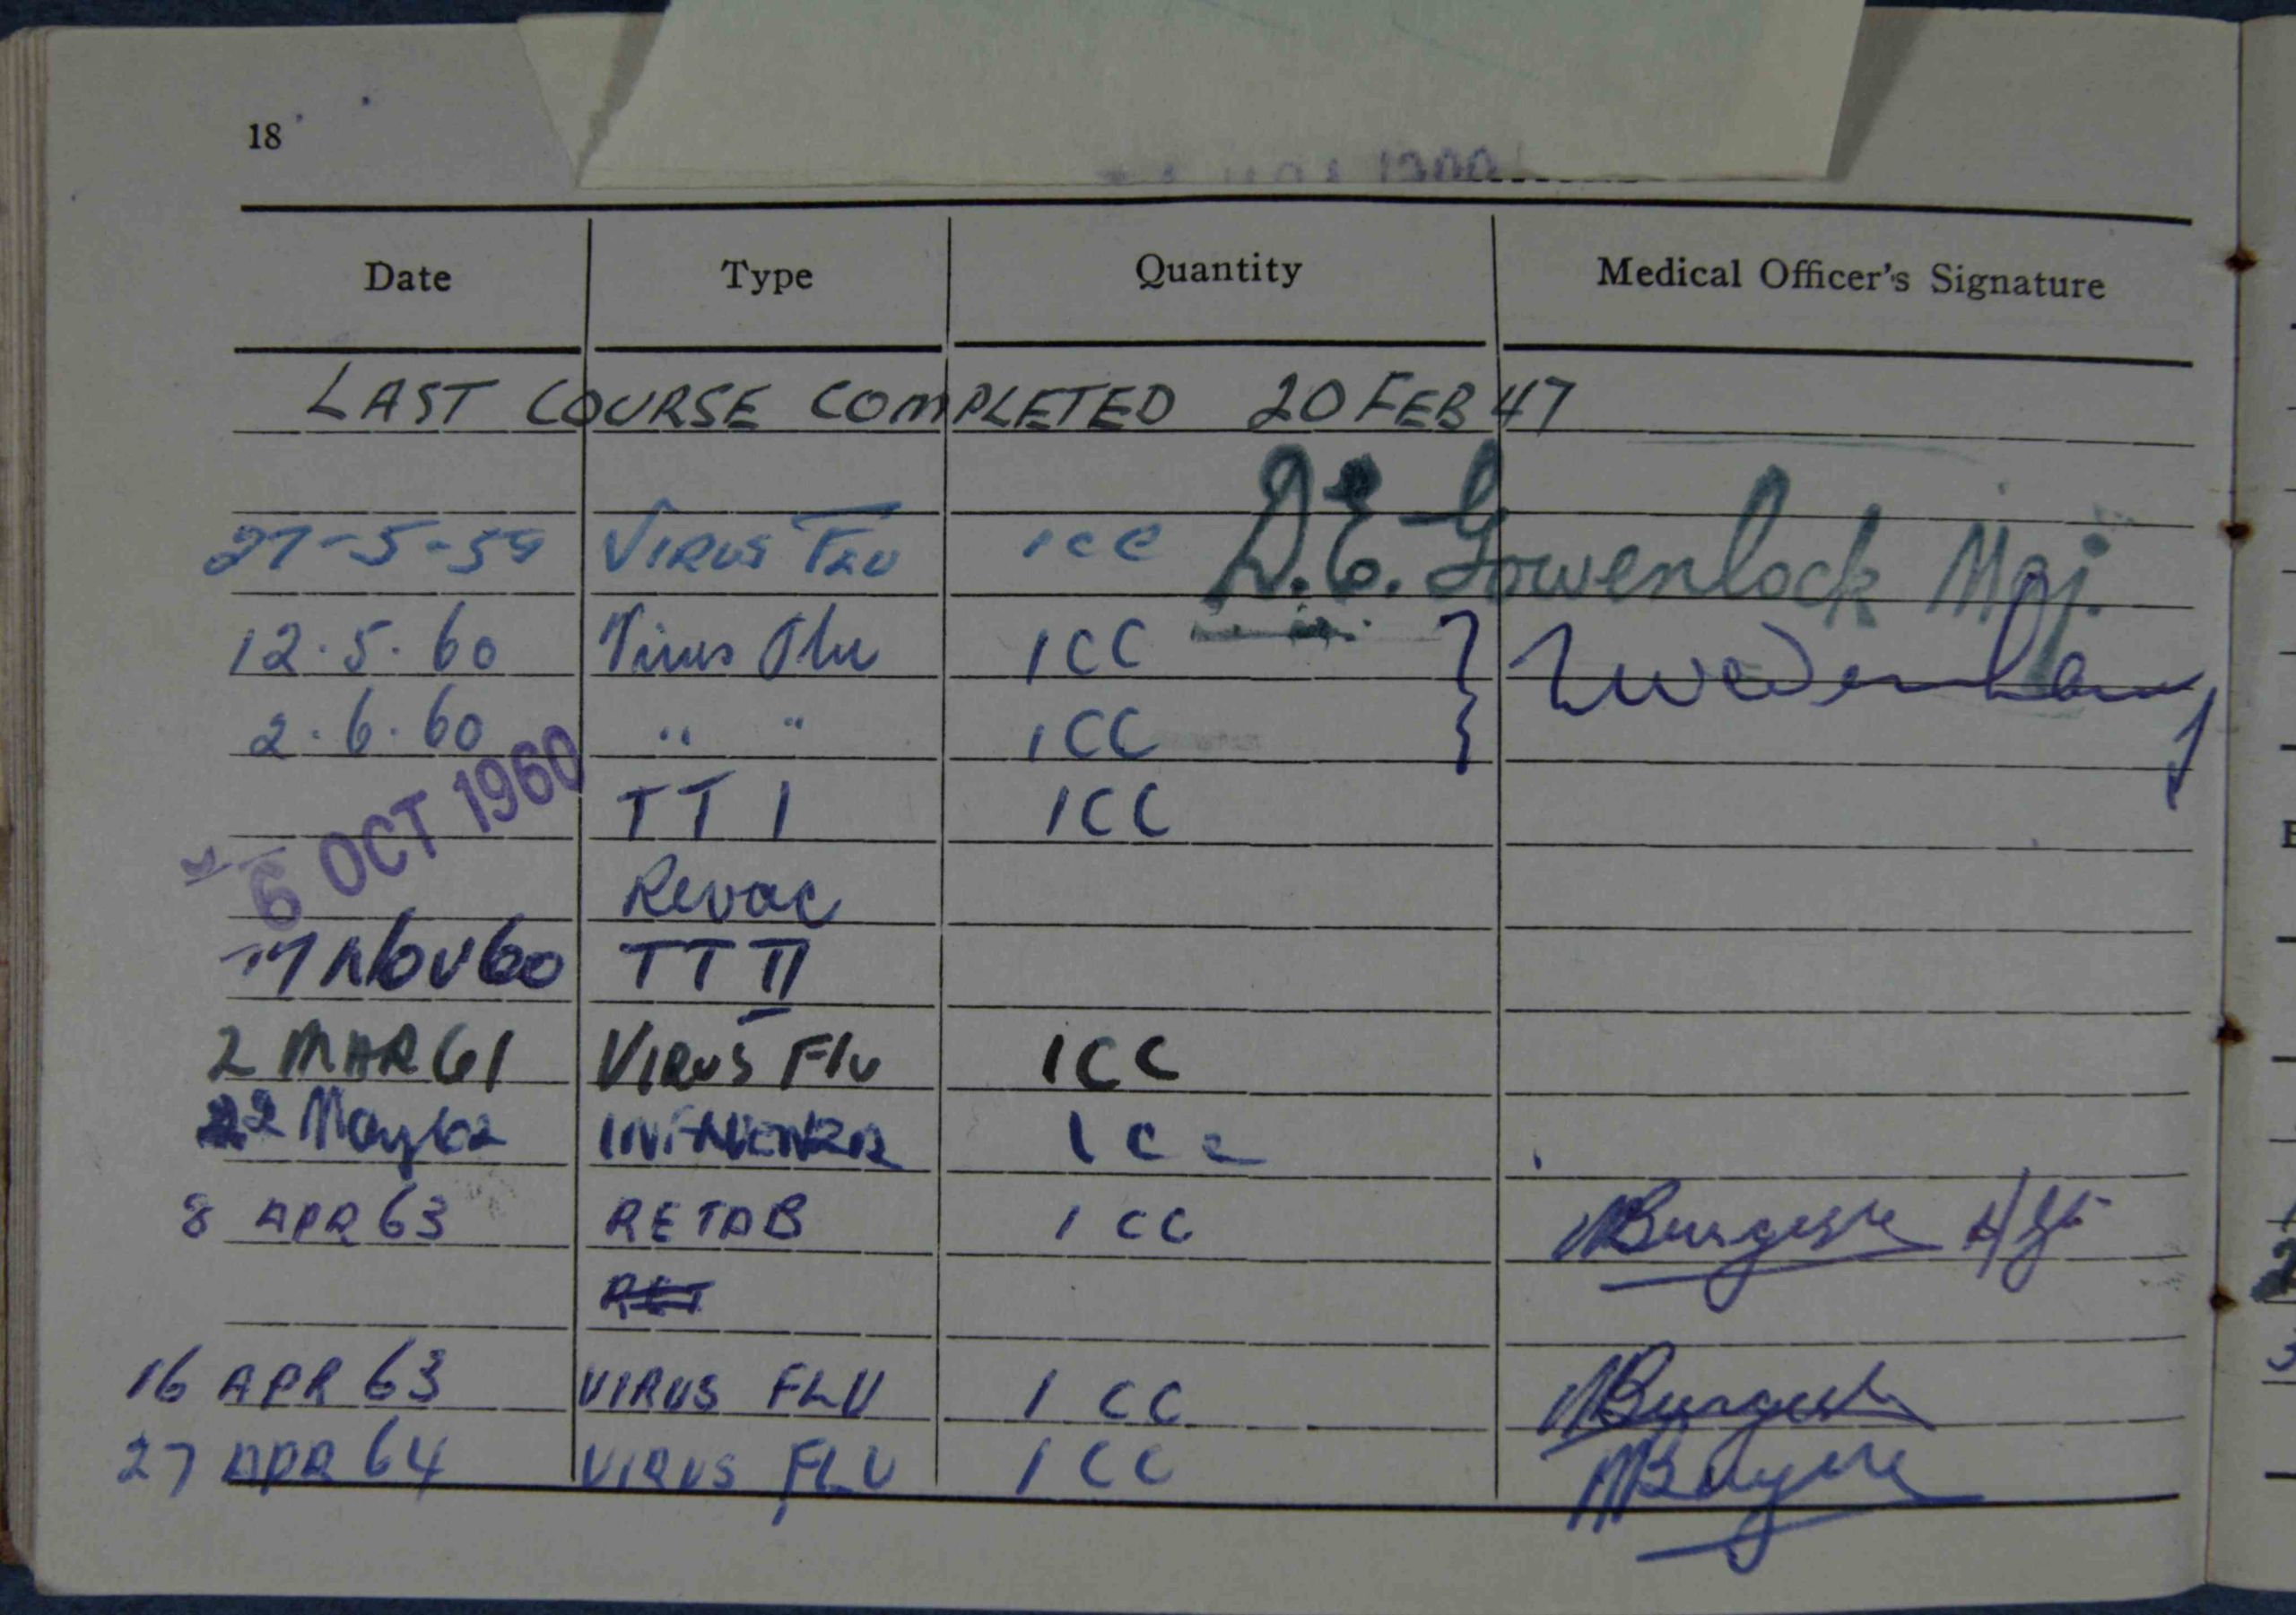 18
Date Type Quantity Medical Officer's Signature
LAST COURSE COMPLETED 20 FEB 47
27-5-59 VIRUS FLU 1CC D.E. Gowenlock Maj.
12.5.60 Virus Flu 1CC
2.6.60 " " 1CC
6 OCT 1960 TT I 1CC
Revac
NOV 60 TT II
2 MAR 61 VIRUS Flu 1CC
22 May 62 INFLUENZA 1CC
8 APR 63 RETAB 1 CC Burgess
RET
16 APR 63 VIRUS FLU 1 CC Burgess
27 APR 64 VIRUS FLU 1 CC Burgess